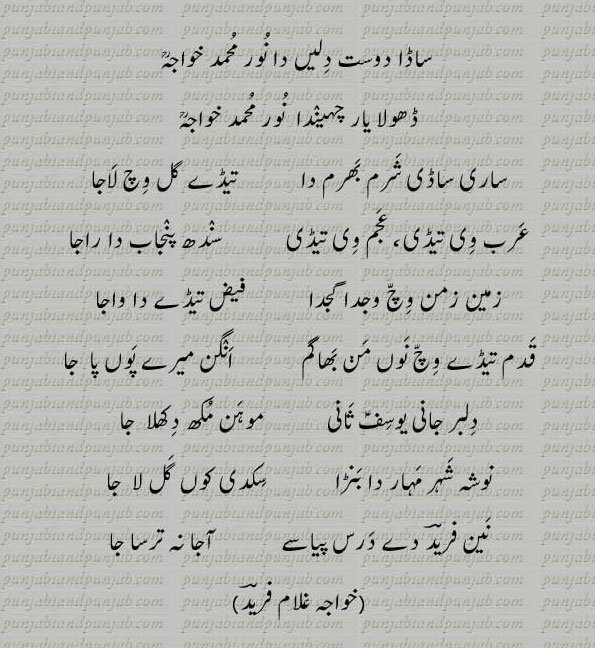 ساڈا دوست دِلیں دا نُور مُحمد خواجہؒ
ڈھولا یار چہینْدا نُور مُحمد خواجہؒ
ساری ساڈی شَرم بَھرم دا تیڈے گل وِچ لَاجا
عَرب وِی تیڈی، عَجم وِی تیڈی سنْدھ پنْجاب دا راجا
زمین زمن وِچّ وجدا گجدا فیض تیڈے دا واجا
قَدم تیڈے وِچّ نَوں مَن بَھاگم اَنْگن میرے پَوں پا جا
دِلبر جانی یوسِفؑ ثَانی موہَن مُکھ دِکھلا جا
نوشہ شَہر مَہار دا بَنڑا سِکدی کوں گَل لا جا
نَین فریدؔ دے دَرس پیاسے آجا نہ ترسا جا
(خواجہ غلام فریدؔ)